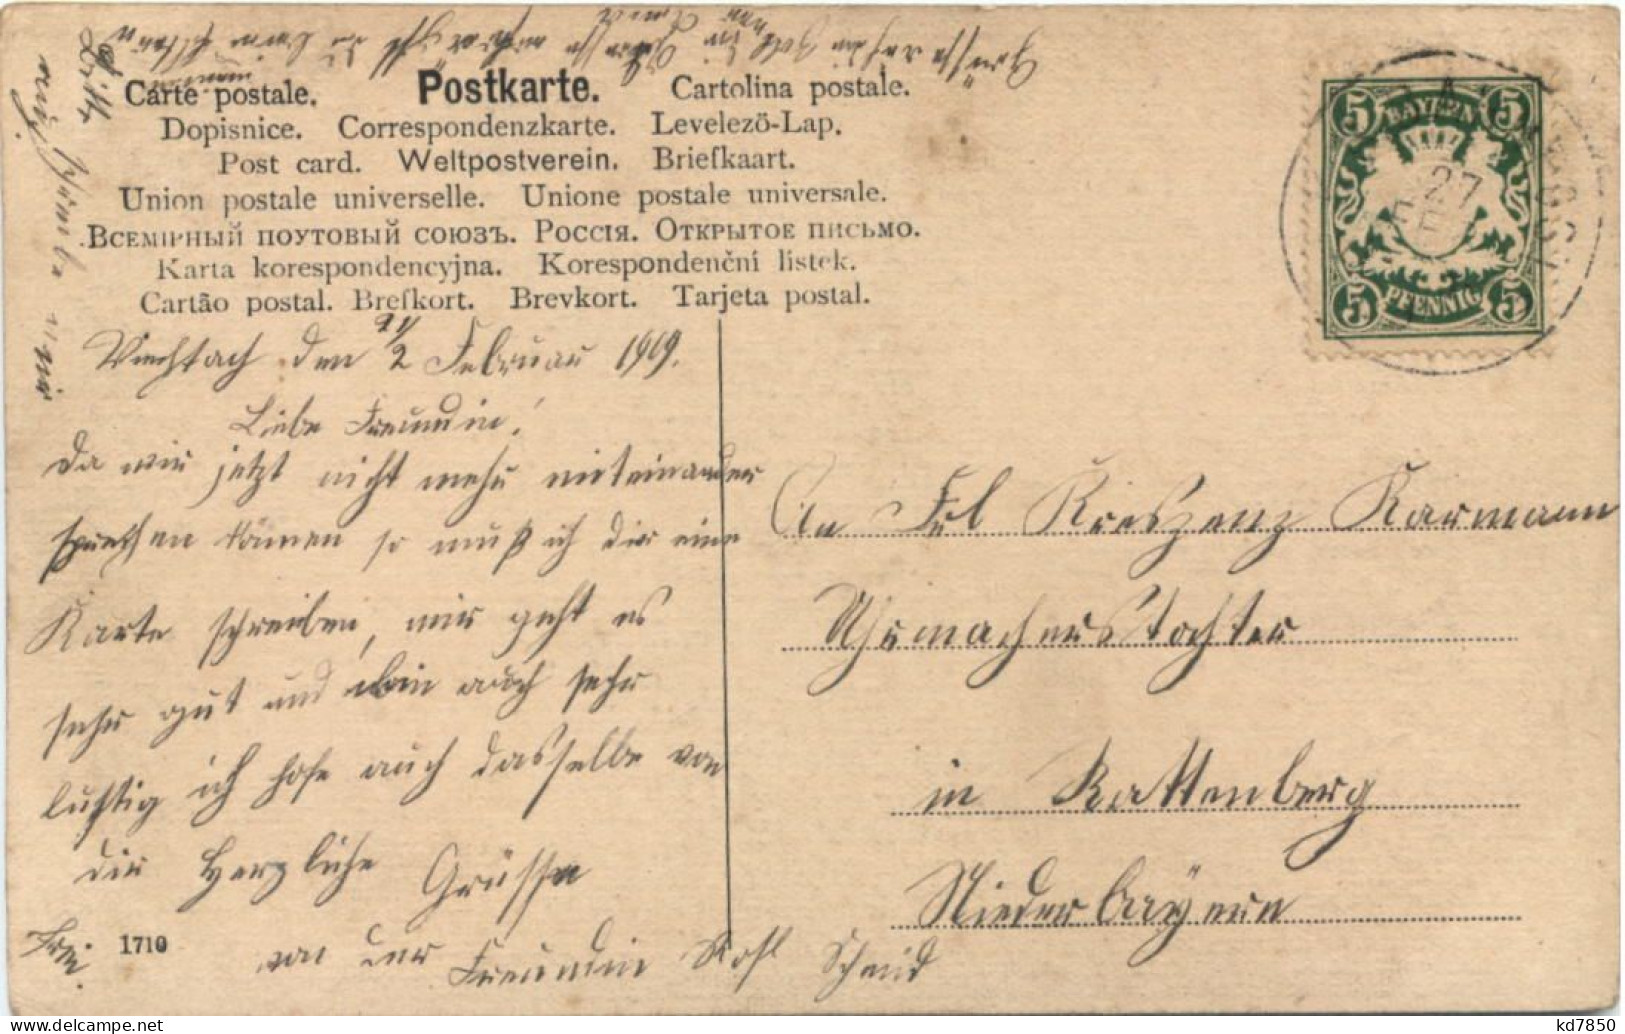 Carte postale. Postkarte. Cartolina postale.
Dopisnice. Correspondenzkarte. Levelező-Lap.
Post card. Weltpostverein. Briefkaart.
Union postale universelle. Unione postale universale.
Всемірный поутовый союзъ. Россія. Открытое письмо.
Karta korespondencyjna. Korespondenční lístek.
Cartão postal. Brefkort. Brevkort. Tarjeta postal.
BAYERN
5 5
27
FEB
5 5
PFENNIG
Viechtach den 2 Februar 1909.
Liebe Freundin!
Da wir jetzt nicht mehr miteinander
sprechen können so muß ich dir eine
Karte schreiben, mir geht es
sehr gut und bin auch sehr
lustig ich hofe auch dasselbe von
dir Herzliche Grüsse
von der Freundin Rosl Schmid
1710
An Frl Kreszenz Karmann
Uhrmacherstochter
in Rattenberg
Niederbayern
kd7850